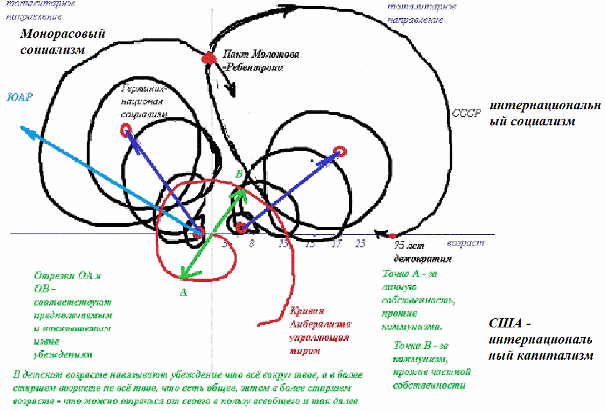 тоталитарное
направление
тоталитарное
направление
Монорасовый
социализм
Пакт Молотова
-Риббентропа
ЮАР
Германия-
национал
социализм
СССР
интернациональн
ый социализм
В
3
8
13
15
17
23
75 лет
возраст
демократия
А
Отрезки ОА и
ОВ -
соответствуют
предполагаемым
и навязываемым
извне
убеждениям
Кривая
Либерализма
управляющая
миром
Точка А - за
личную
собственность,
против
коммунизма.
Точка В - за
коммунизм,
против частной
собственности
США -
интернациональ
ный капитализм
В детском возрасте навязывают убеждение что всё вокруг твое, а в более
старшем возрасте не всё твое, что есть общее, затем в более старшем
возрасте - что можно отречься от своего в пользу всеобщего и так далее